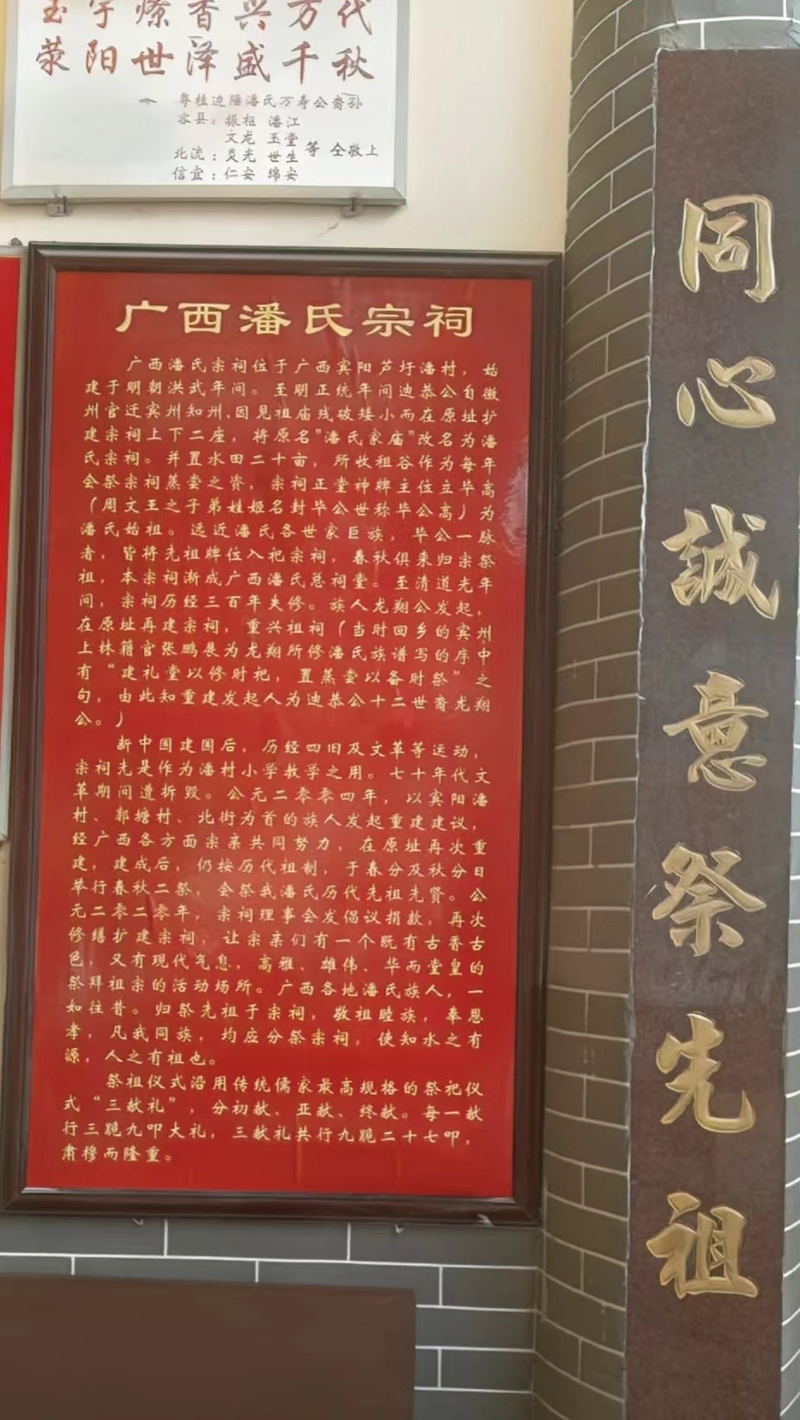 玉宇燦香兴万代
荥阳世泽盛千秋
粤桂边陲潘氏万寿公裔孙
容县：振祖 潘江
文龙 玉堂
北流：炎光 世生 等 仝敬上
信宜：仁安 绵安
广西潘氏宗祠
广西潘氏宗祠位于广西宾阳芦圩潘村，始
建于明朝洪武年间。至明正统年间迪恭公自徽
州官迁宾州知州、因见祖庙残破矮小而在原址扩
建宗祠上下二座，将原名"潘氏家庙"改名为潘
氏宗祠。并置水田二十亩，所收祖谷作为每年
会祭宗祠蒸尝之资，宗祠正堂神牌主位立毕高
（周文王之子弟姓姬名封毕公世称毕公高）为
潘氏始祖。远近潘氏各世家巨族，毕公一脉
者，皆将先祖牌位入祀宗祠，春秋俱来归宗祭
祖，本宗祠渐成广西潘氏总祠堂。至清道光年
间，宗祠历经三百年失修。族人龙翔公发起，
在原址再建宗祠，重兴祖祠（当时回乡的宾州
上林籍官张鹏展为龙翔所修潘氏族谱写的序中
有“建礼堂以修时祀，置蒸尝以备时祭”之
句，由此知重建发起人为迪恭公十二世裔龙翔
公。）
新中国建国后，历经四旧及文革等运动，
宗祠先是作为潘村小学教学之用。七十年代文
革期间遭拆毁。公元二零零四年，以宾阳潘
村、郭塘村、北街为首的族人发起重建建议，
经广西各方面宗亲共同努力，在原址再次重
建，建成后，仍按历代祖制，于春分及秋分日
举行春秋二祭，会祭我潘氏历代先祖先贤。公
元二零二零年，宗祠理事会发倡议捐款，再次
修缮扩建宗祠，让宗亲们有一个既有古香古
色，又有现代气息，高雅、雄伟、华而堂皇的
祭拜祖宗的活动场所。广西各地潘氏族人，一
如往昔。归祭先祖于宗祠，敬祖睦族，奉恩
孝，凡我同族，均应分祭宗祠，使知水之有
源，人之有祖也。
祭祖仪式沿用传统儒家最高规格的祭祀仪
式“三献礼”，分初献、亚献、终献。每一献
行三跪九叩大礼，三献礼共行九跪二十七叩，
肃穆而隆重。
同心誠意祭先祖